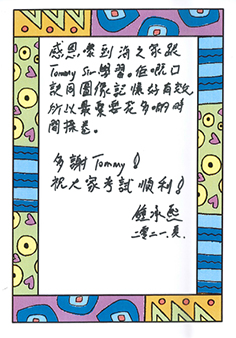 感恩,來到海之家跟
Tommy Sir 學習。佢啲口
訣同圖像記憶好有效,
所以最緊要花多啲時
間操卷。
多謝Tommy!
祝大家考試順利!
鍾承熙
二零二一.夏.